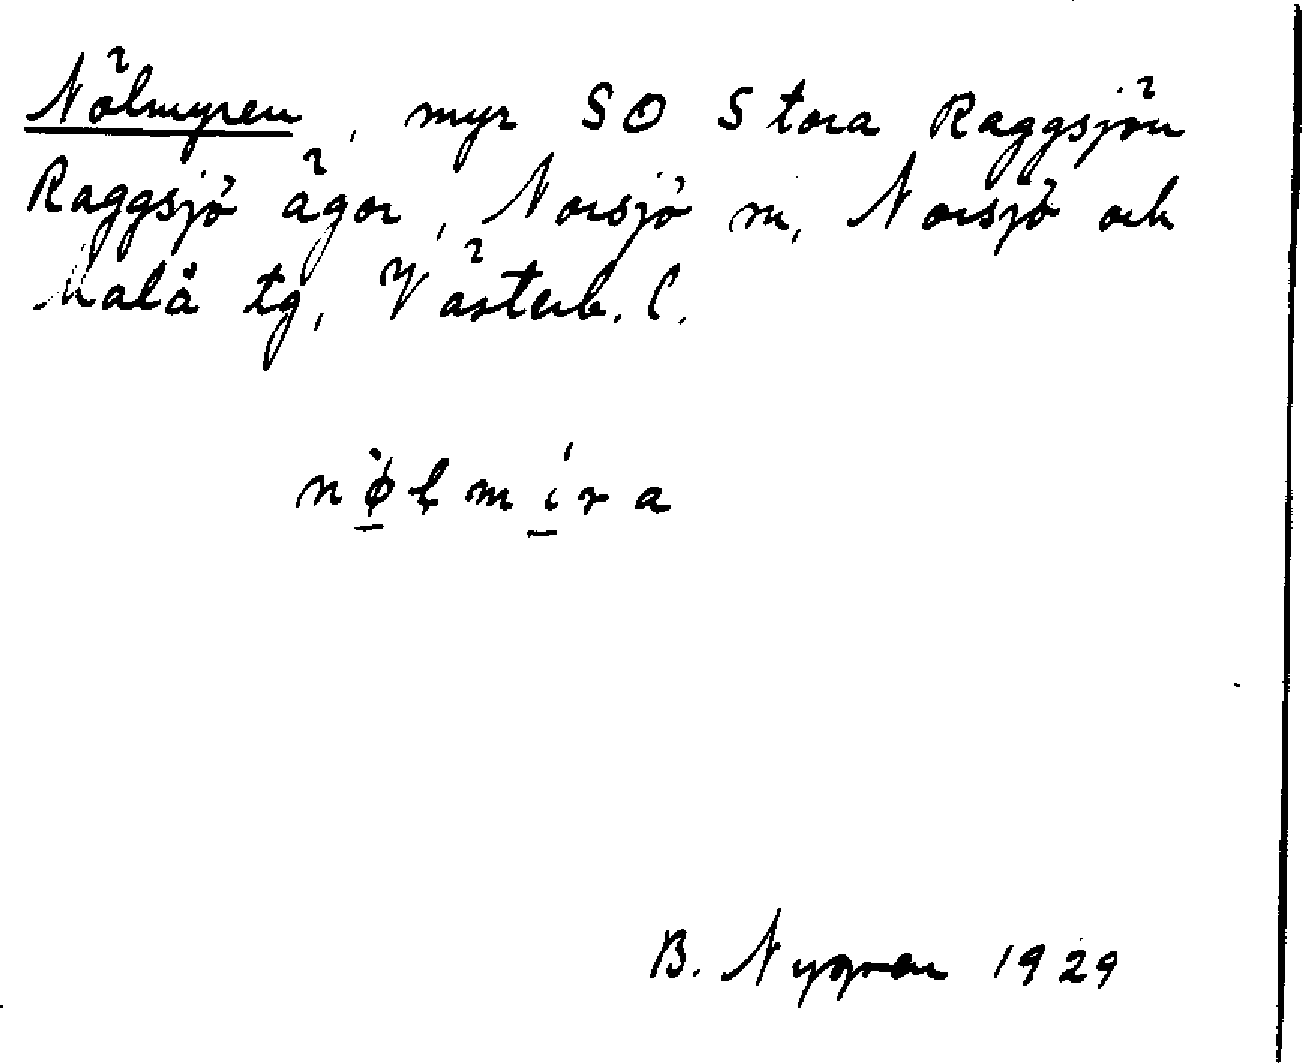 Nölmyren, myr SO Stora Raggsjön
Raggsjö ägor, Norsjö sn, Norsjö och
Malå tg, Västerb. l.
nø̀lmíra
B. Nygren 1929